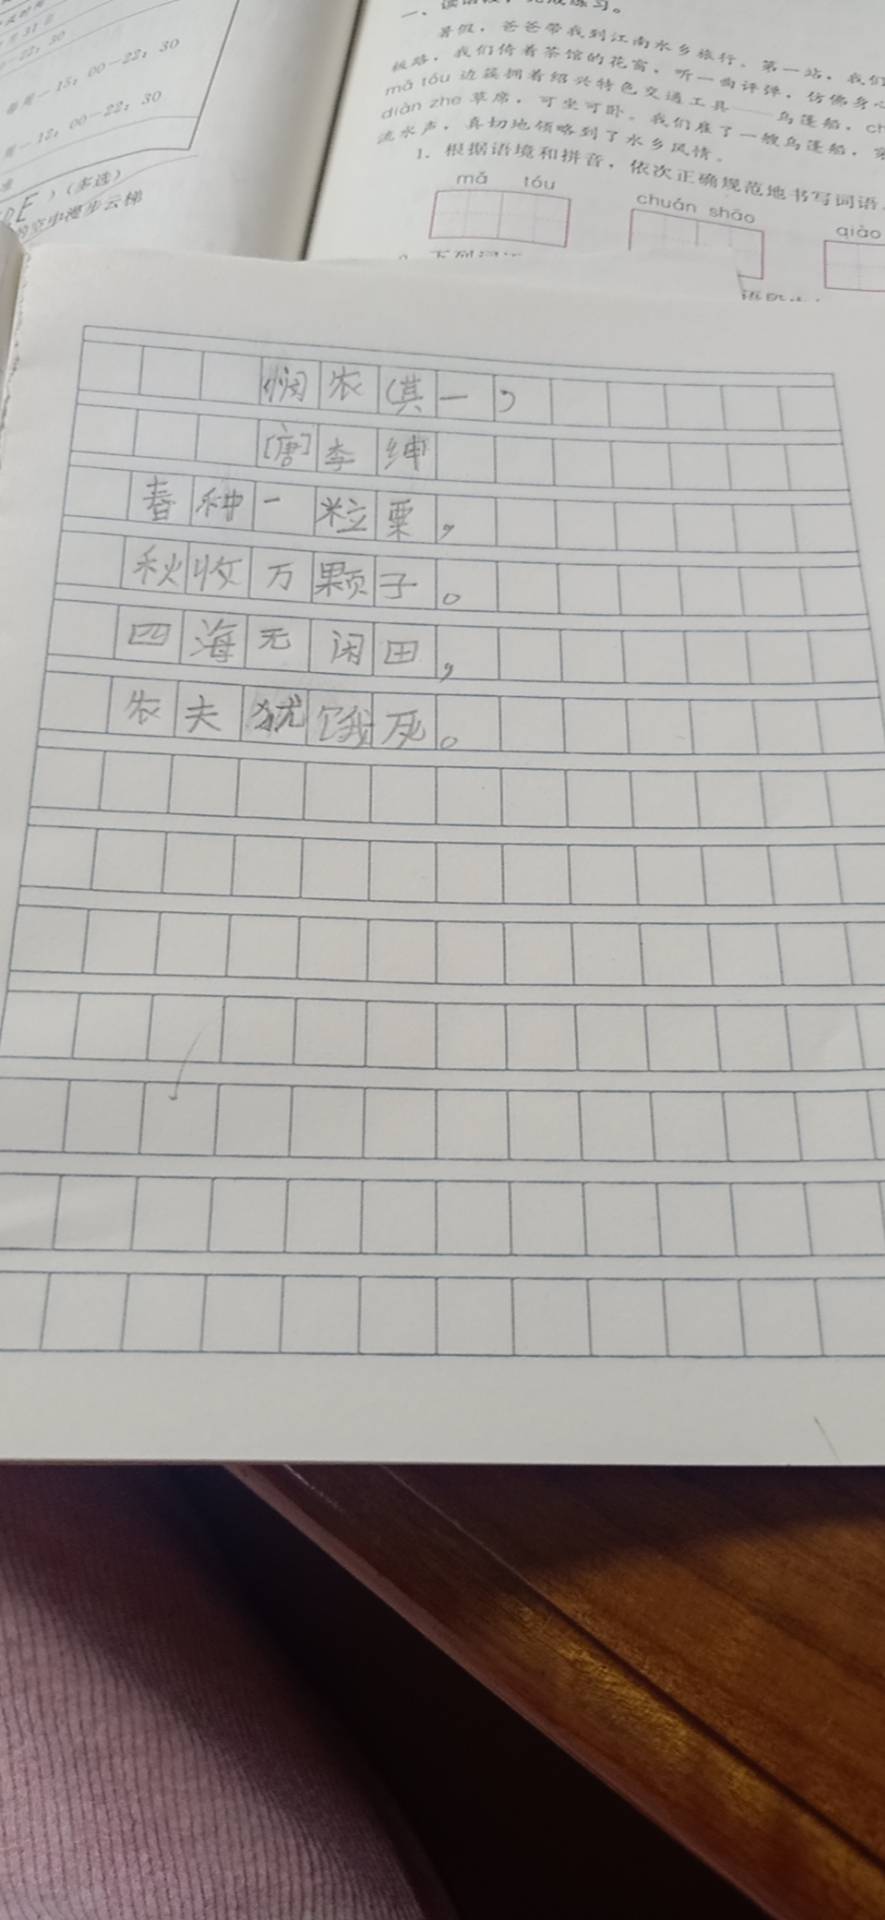 22:30
每周一15:00-22:30
周一12:00-22:30
DE）（多选）
空中漫步云梯
暑假，爸爸带我到江南水乡旅行。第一站，我们
板路，我们倚着茶馆的花窗，听一曲评弹，仿佛身心
mǎ tóu 边簇拥着绍兴特色交通工具——乌篷船，ch
diàn zhe 草席，可坐可卧。我们雇了一艘乌篷船，穿
流水声，真切地领略到了水乡风情。
1. 根据语境和拼音，依次正确规范地书写词语
mǎ tóu
chuán shāo
qiào
悯农(其一)
[唐]李绅
春种一粒粟，
秋收万颗子。
四海无闲田，
农夫犹饿死。